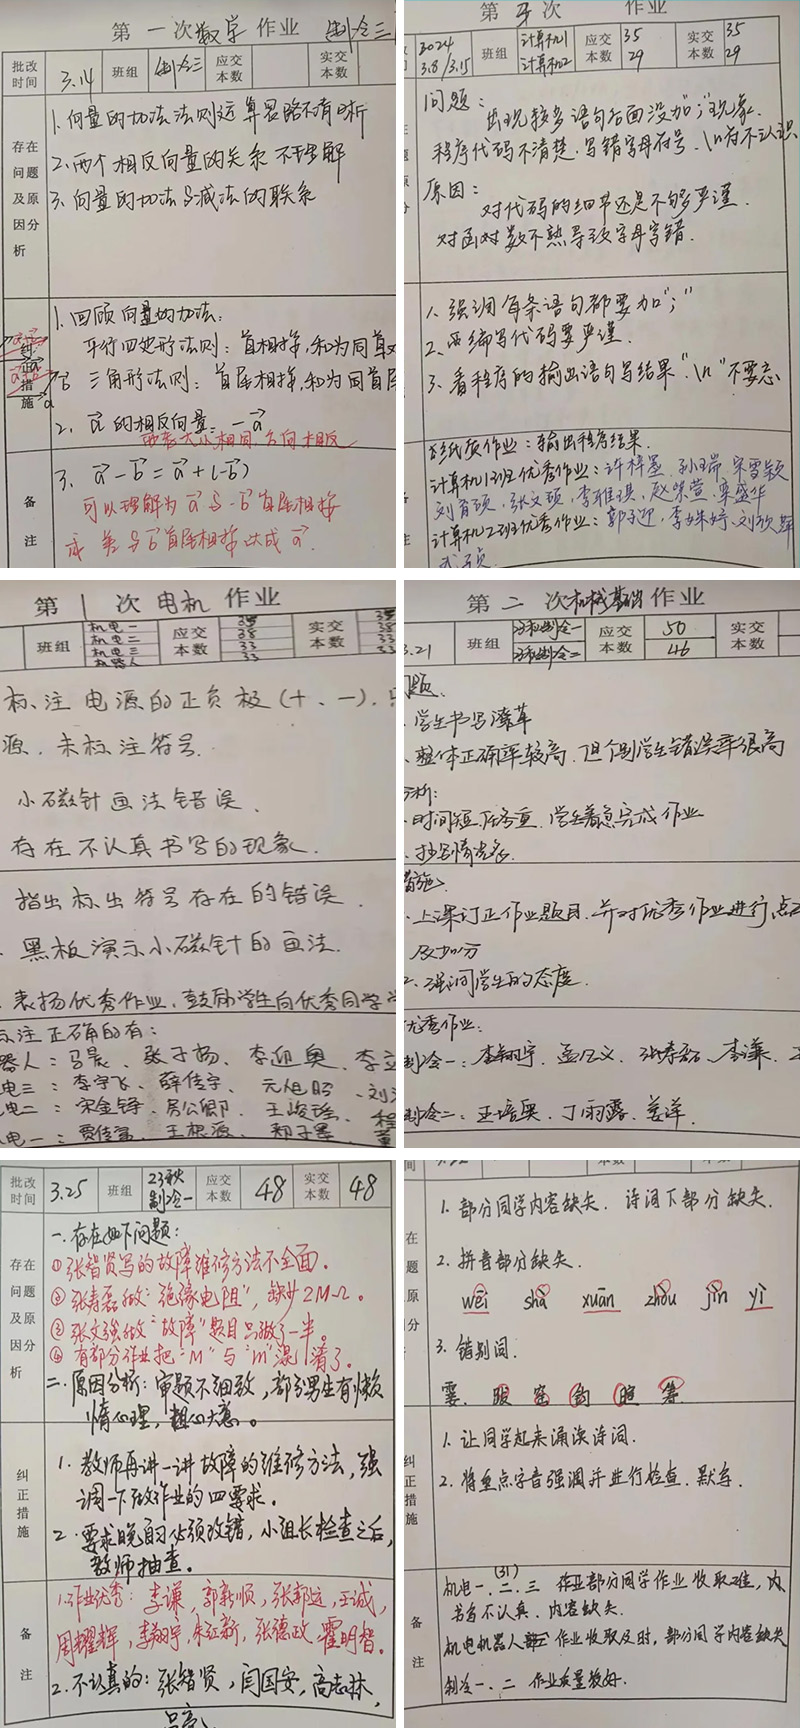 第 一 次 数学 作业 制冷三
批改时间 3.14 班组 制冷三 应交本数 实交本数
存在问题及原因分析
1. 向量的加法法则运算忽略不清晰
2. 两个相反向量的关系不理解
3. 向量的加法与减法的联系
纠正措施
1. 回顾向量的加法：
平行四边形法则：首相接，和为同首
三角形法则：首尾相接，和为同首尾
2. a 的相反向量：-a
两者大小相同 方向相反
备注
3. a - b = a + (-b)
可以理解为 a 与 -b 首尾相接
或 差与 b 首尾相接达成 a.
第 次 作业
2024 3.8/3.15 班组 计算机1 计算机2 应交本数 35 29 实交本数 35 29
问题：
出现较多语句后面没加";"现象.
程序代码不清楚.写错字母符号.\n为不认识
原因：
对代码的细节还是不够严谨.
对函数不熟导致字母写错.
1. 强调每条语句都要加";"
2. 编写代码要严谨.
3. 看程序的输出语句写结果"\n"不要忘
纸质作业：输出程序结果.
计算机1班优秀作业：许梓墨.孙玉端.宋雪颖
刘育硕，张文硕，李雅琪，赵荣萱，栾盛华
计算机2班优秀作业：郭子迎，李姝婷，刘欣
第 1 次 电机 作业
班组 机电一 机电二 机电三 机器人 应交本数 38 38 33 33 实交本数
标注电源的正负极(+、-).
源.未标注符号.
小磁针画法错误.
存在不认真书写的现象.
指出标出符号存在的错误.
黑板演示小磁针的画法.
表扬优秀作业.鼓励学生向优秀同学学
标注正确的有：
器人：马晨、张子杨、李迎奥、李立
电三：李宇飞、薛传宇、元旭昭、刘
电二：宋金铮、房公卿、王峻瑞、程
电一：贾佳富、王根源、郑子墨、董
第 二 次 机械基础 作业
3.21 班组 制冷一 制冷二 应交本数 50 46 实交本数
问题、
学生书写潦草
整体正确率较高，但个别学生错误率很高
分析：
时间短，任务重，学生着急完成作业
抄袭情况多.
措施、
上课订正作业题目.并对优秀作业进行点
及加分
2. 强调学生的态度.
优秀作业：
制冷一：李翔宇、孟凡义、张寿磊、李谦、
制冷二：王培奥、丁雨露、姜洋、
批改时间 3.25 班组 23秋制冷一 应交本数 48 实交本数 48
存在问题及原因分析
一. 存在如下问题：
① 张智贤写的故障维修方法不全面.
② 张寿磊做"绝缘电阻"，缺少2MΩ.
③ 张文强做"故障"题目只做了一半.
④ 有部分作业把"M"与"m"混淆了.
二. 原因分析：审题不细致，部分男生有懒
惰心理，粗心大意.
纠正措施
1. 教师再讲一讲故障的维修方法，强
调一下改作业的四要求.
2. 要求晚自习必须改错，小组长检查之后，
教师抽查.
备注
1. 作业优秀：李谦，郭新顺，张郭运，王诚，
周耀辉，李翔宇，朱征新，张德政，霍明智.
2. 不认真的：张智贤，闫国安，高志林，
吕亮
应交本数 实交本数
1. 部分同学内容缺失. 诗词下部分缺失.
2. 拼音部分缺失.
wēi shà xuān zhōu jīn yì
3. 错别词.
霎 暇 窕 钧 暄 等
纠正措施
1. 让同学起来诵读诗词.
2. 将重点字音强调并进行检查.默写.
备注
机电一.二.三 (31) 作业部分同学作业收取难，内
书写不认真.内容缺失.
机电机器人 作业收取及时，部分同学内容缺失
制冷一.二 作业质量较好.